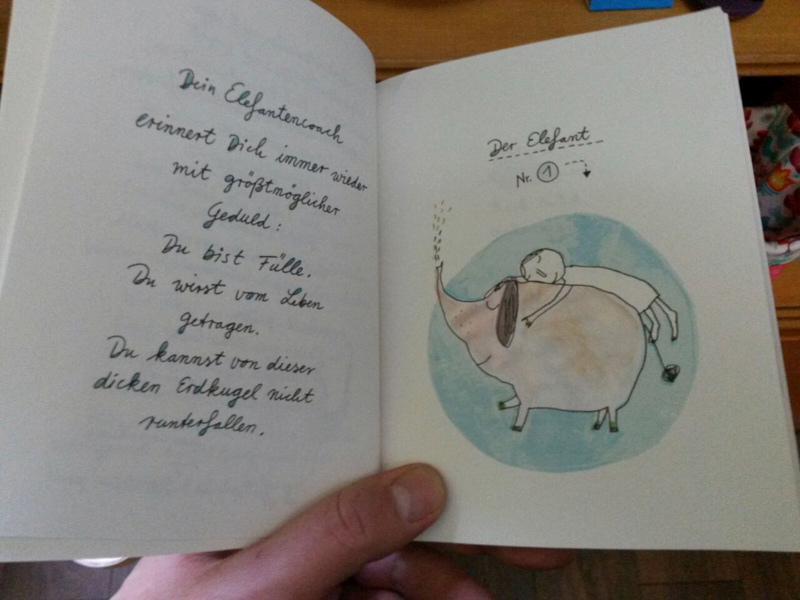 Dein Elefantencoach
erinnert Dich immer wieder
mit größtmöglicher
Geduld:
Du bist Fülle.
Du wirst vom Leben
getragen.
Du kannst von dieser
dicken Erdkugel nicht
runterfallen.
Der Elefant
Nr. 1